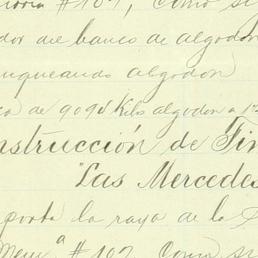 #107, Como si
dor del banco de algodon
nqueando algodon
de 9098 Kilos algodon a 12
nstrucción de Fin
"Las Mercedes
porta la raya de la
Men.ª #107 Como si